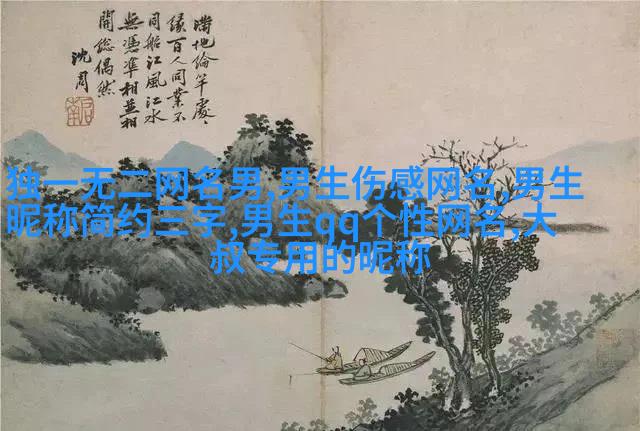 滿地綸竿處〻
緣百人同業不
同船江風江水
無憑準相並相
開總偶然
沈周
独一无二网名男,男生伤感网名,男生
昵称简约三字,男生qq个性网名,大
叔专用的昵称